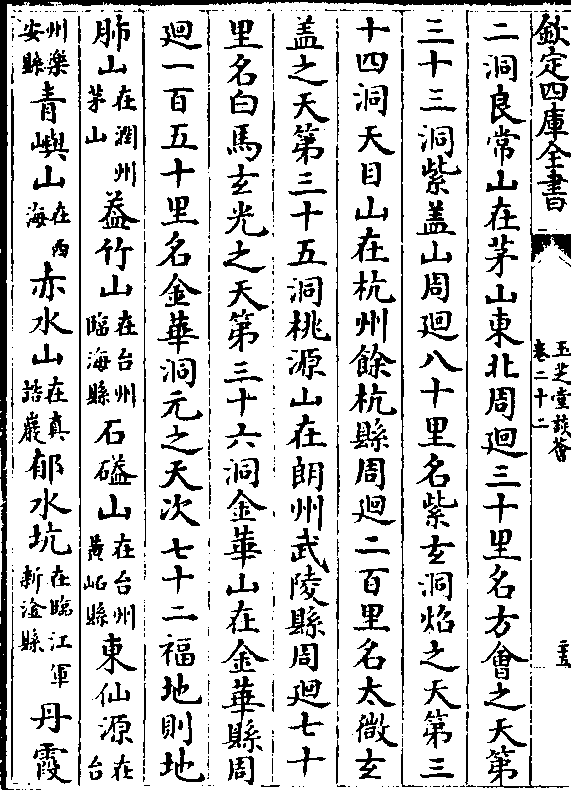 欽定四庫全書
玉芝堂談薈
卷二十二
二洞良常山在茅山東北周廻三十里名方會之天第
三十三洞紫盖山周廻八十里名紫玄洞焰之天第三
十四洞天目山在杭州餘杭縣周廻二百里名太微玄
盖之天第三十五洞桃源山在朗州武陵縣周廻七十
里名白馬玄光之天第三十六洞金華山在金華縣周
廻一百五十里名金華洞元之天次七十二福地則地
肺山在潤州茅山益竹山在台州臨海縣石磕山在台州黃岩縣東仙源在台
州樂安縣青嶼山在西海赤水山在真誥巖郁水坑在臨江軍新淦縣丹霞